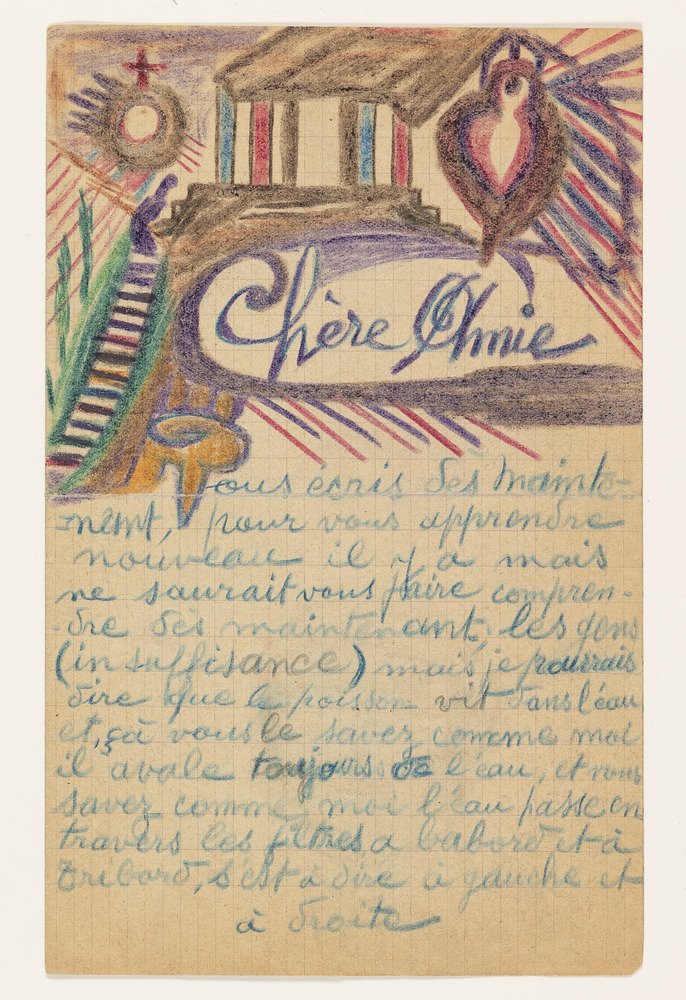 Chère Amie
Vous écris dès mainte-
nent, pour vous apprendre
nouveau il y a mais
ne saurait vous faire compren-
-dre dès maintenant, les gens
(insuffisance) mais je pourrais
dire que le poisson vit dans l'eau
et, çà vous le savez comme moi
il avale toujours de l'eau, et vous
savez comme moi l'eau passe en
travers les filtres a babord et à
tribord, s'est à dire à gauche et
à droite